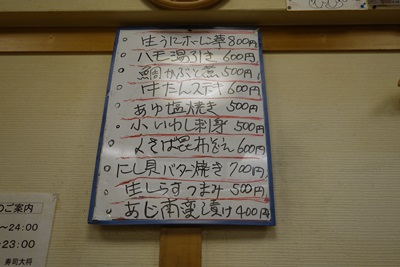 生うにホーレン草 800円
ハモ湯引き 600円
鯛かぶと煮 500円
牛たんステーキ 600円
あゆ塩焼き 500円
小いわし刺身 500円
よさば昆布どん 600円
にし貝バター焼き 700円
生しらすつまみ 500円
あじ南蛮漬け 400円
のご案内
〜24:00
〜23:00
寿司大将